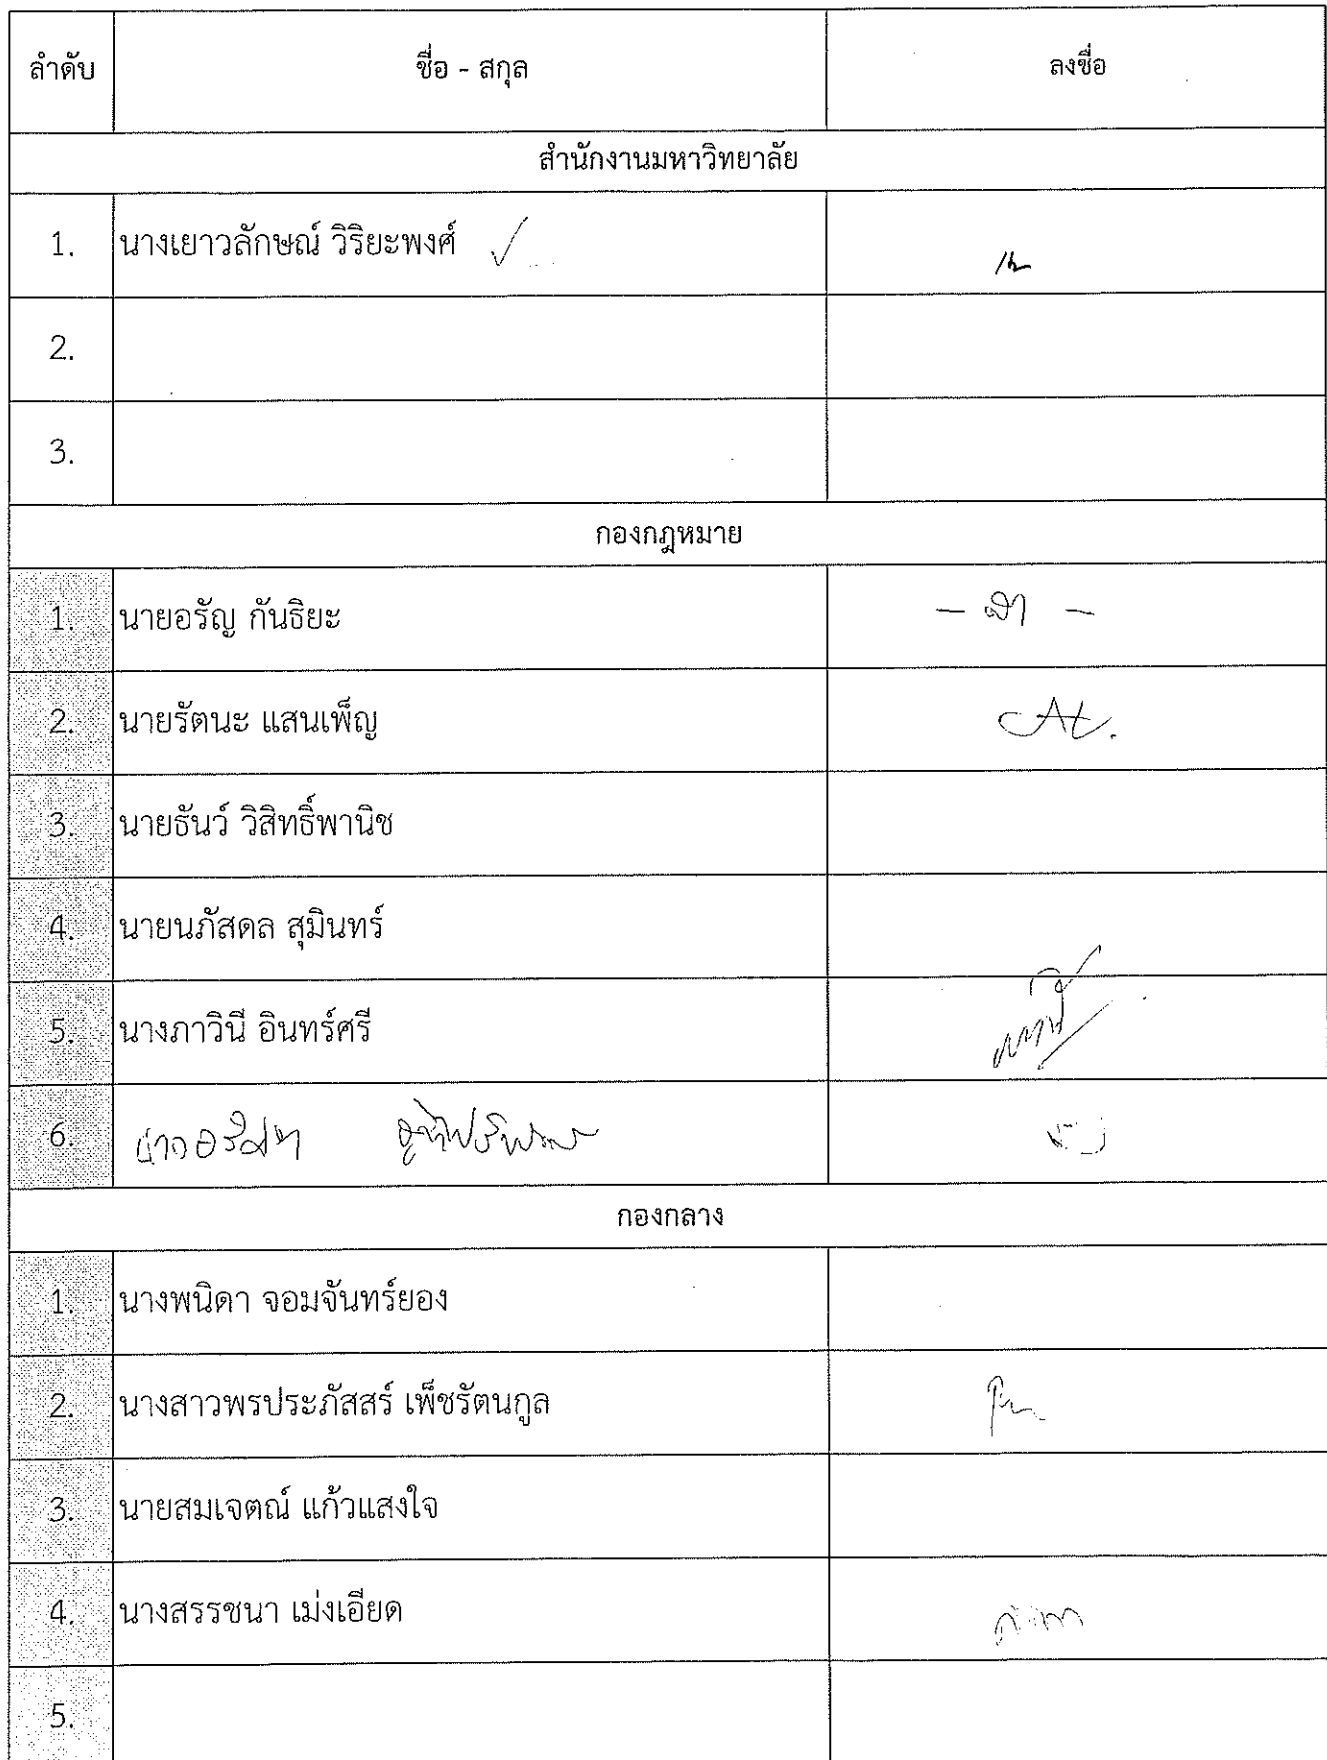 ลำดับ ชื่อ - สกุล ลงชื่อ
สำนักงานมหาวิทยาลัย
1. นางเยาวลักษณ์ วิริยะพงศ์
2.
3.
กองกฎหมาย
1. นายอรัญ กันธิยะ - ลา -
2. นายรัตนะ แสนเพ็ญ
3. นายธันว์ วิสิทธิ์พานิช
4. นายนภัสดล สุมินทร์
5. นางภาวินี อินทร์ศรี
6.
กองกลาง
1. นางพนิดา จอมจันทร์ยอง
2. นางสาวพรประภัสสร์ เพ็ชรัตนกูล
3. นายสมเจตณ์ แก้วแสงใจ
4. นางสรรชนา เม่งเอียด
5.